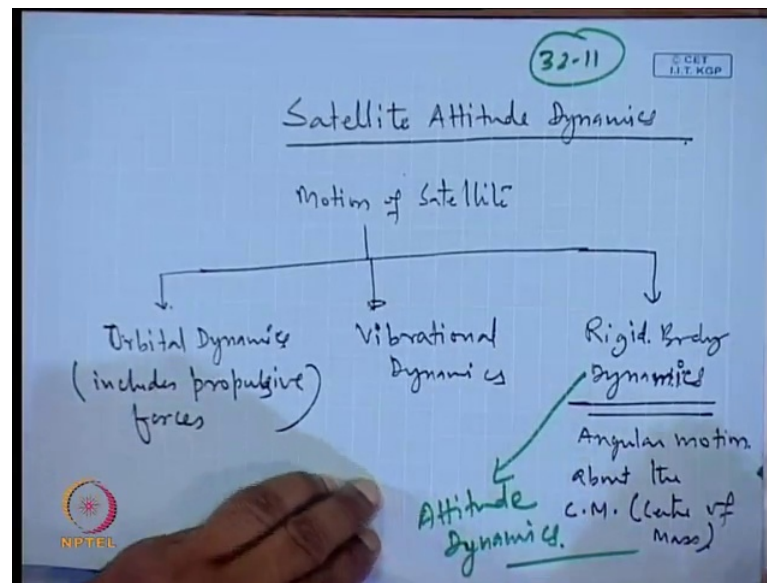 32-11
© CET
I.I.T. KGP
Satellite Attitude Dynamics
Motion of Satellite
Orbital Dynamics
(includes propulsive)
forces
Vibrational
Dynamics
Rigid. Body
Dynamics
Angular motion
about the
C.M. (Centre of
Mass)
Attitude
Dynamics.
NPTEL